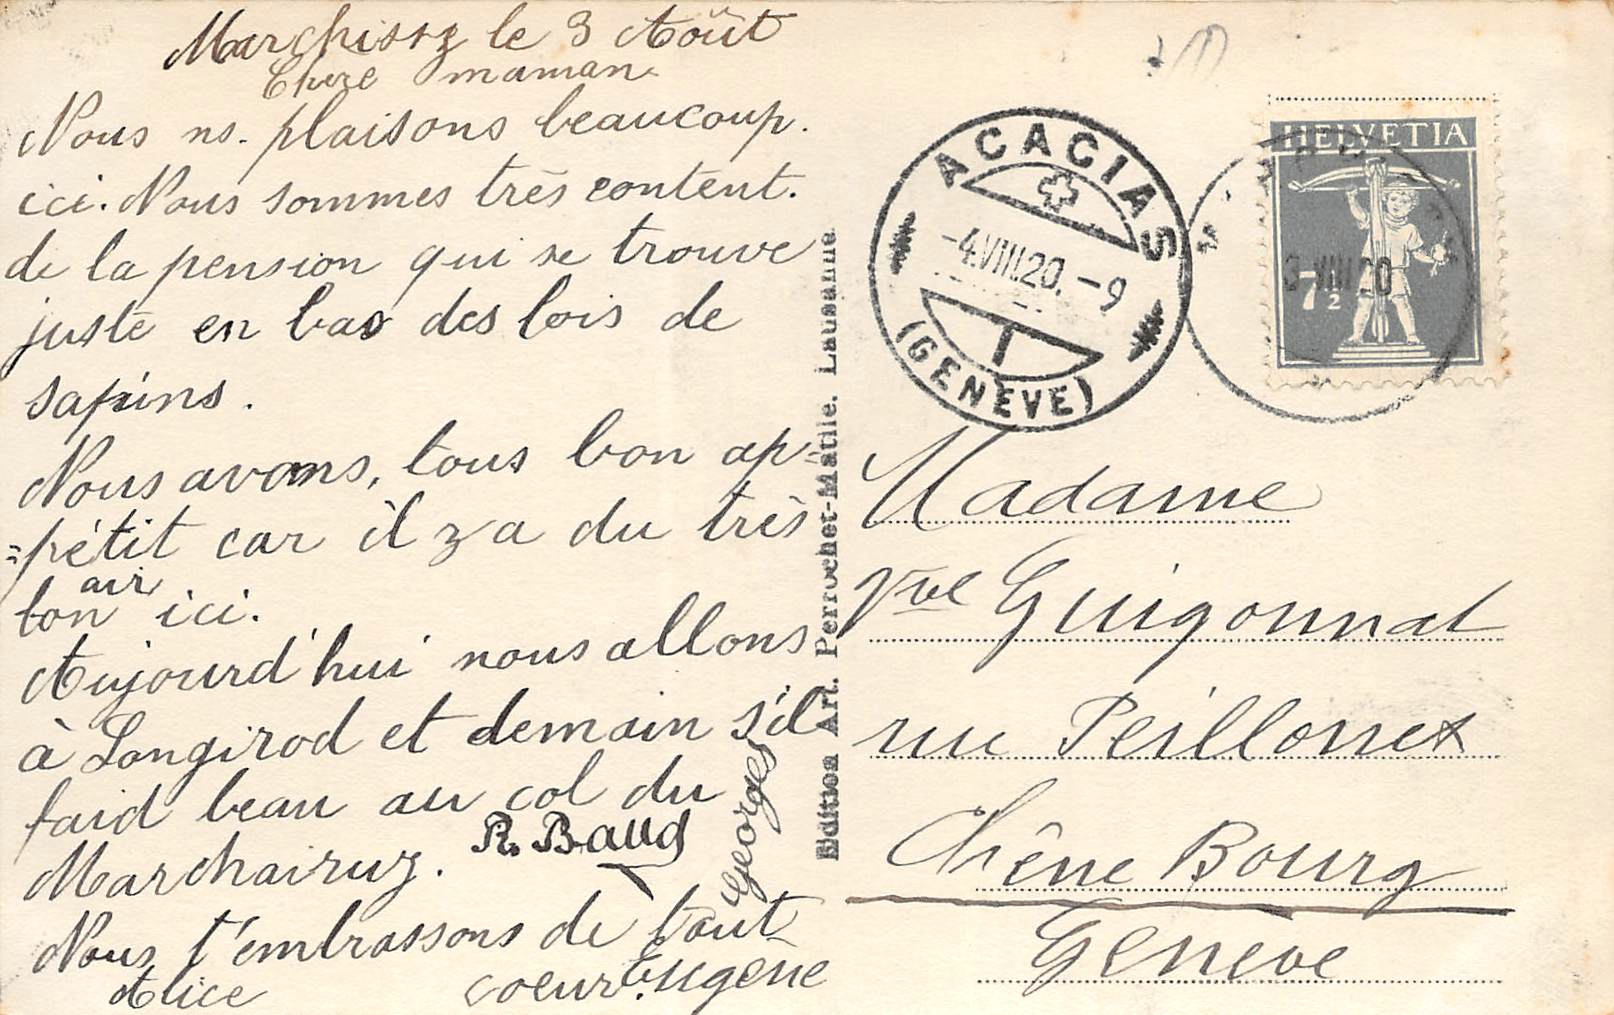 Marchissy le 3 Août
Chère maman
Nous ns. plaisons beaucoup.
ici. Nous sommes très content.
de la pension qui se trouve
juste en bas des bois de
sapins.
Nous avons, tous bon ap-
=pétit car il y a du très
bon air ici.
Aujourd'hui nous allons
à Longirod et demain s'il
faid beau au col du
Marchairuz.
R. Baud
Georges
Nous t'embrassons de tout
coeur. Eugène
Alice
Edition Art. Perrochet-Matile. Lausanne
ACACIAS
-4.VIII.20.-9
(GENÈVE)
HELVETIA
7½
3 VIII 20
Madame
Vve Guigonnat
rue Peillonex
Chêne Bourg
Genève